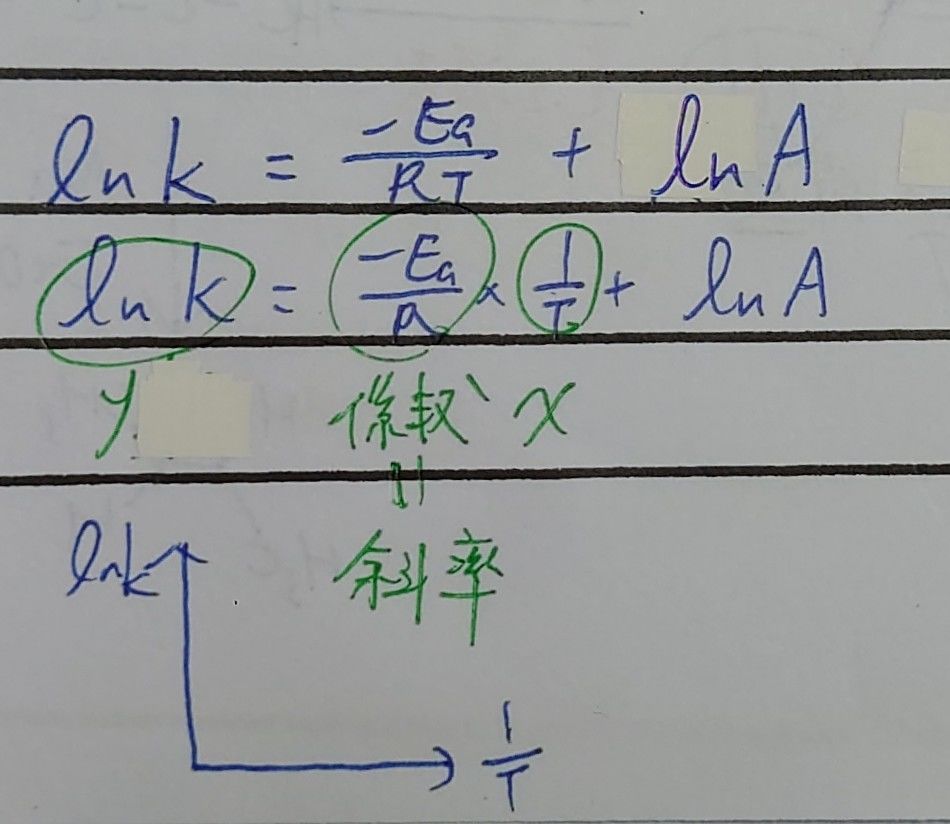 ln k = -Ea/RT + ln A
ln k = -Ea/R × 1/T + ln A
y 係数 x
=
斜率
ln k
1/T